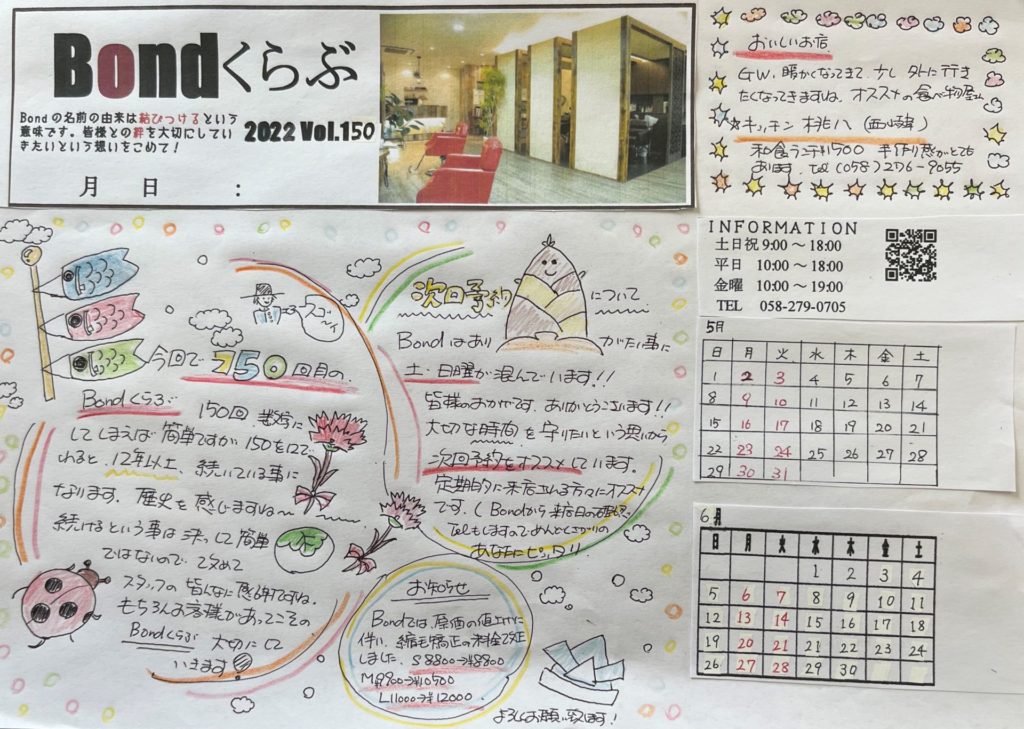 Bondくらぶ
Bondの名前の由来は結びつけるという
意味です。皆様との絆を大切にしてい
きたいという想いをこめて！
2022 Vol.150
月　日　：
おいしいお店
GW、暖かくなってきて、少し外に行き
たくなってきますね。オススメの食べ物屋さん
☆キッチン 桃八（西島韓）
和食ランチ¥1500 手作り感がとても
あります。Tel (058) 276-9055
INFORMATION
土日祝 9:00～18:00
平日 10:00～18:00
金曜 10:00～19:00
TEL 058-279-0705
5月
日 月 火 水 木 金 土
1 2 3 4 5 6 7
8 9 10 11 12 13 14
15 16 17 18 19 20 21
22 23 24 25 26 27 28
29 30 31
6月
日 月 火 水 木 金 土
1 2 3 4
5 6 7 8 9 10 11
12 13 14 15 16 17 18
19 20 21 22 23 24 25
26 27 28 29 30
スゴーイ
今回で150回目の
Bondくらぶ
150回 数字に
してしまえば簡単ですが 150を12で
わると、12年以上、続いている事に
なります。歴史を感じますね〜
続けるという事は決して簡単
ではないので、改めて
スタッフの皆んなに感謝ですね。
もちろんお客様があってこその
Bondくらぶ 大切にして
いきます！
次回予約について
Bondはありがたい事に
土・日曜が混んでいます!!
皆様のおかげです。ありがとうございます!!
大切な時間を守りたいという思いから
次回予約をオススメしています。
定期的に来店される方々にオススメ
です。(Bondから来店日の確認
Telもしますのでめんどくさがりの
あなたにピッタリ!!
お知らせ
Bondでは、原価の値上げに
伴い、縮毛矯正の料金で改正
しました。S 8800→¥8800
M9900→¥10500
L11000→¥12000
よろしくお願い致します！